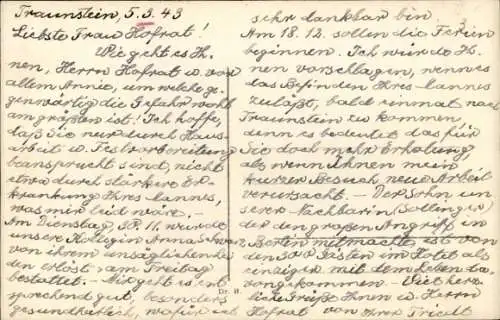 Traunstein, 5.3.43
Liebste Frau Hofrat!
Wie geht es Ih-
nen, Herrn Hofrat u. vor
allem Annie, um welche ge-
genwärtig die Gefahr wohl
am größten ist! Ich hoffe,
daß Sie nur durch Haus-
arbeit u. Festvorbereitung
beansprucht sind, nicht
etwa durch stärkere Er-
krankung Ihres
was mir leid wäre. –
Am Dienstag, 30.11. wurde
unsere Kollegin Anna
von ihrem unsäglichen Lei-
den erlöst, am Freitag
bestattet. – Mir geht es ent-
sprechend gut, besonders
gesundheitlich, wofür ich
sehr dankbar bin.
Am 18.12. sollen die Ferien
beginnen. Ich würde Ih-
nen vorschlagen, wenn es
das Befinden Ihres
zuläßt, bald einmal nach
Traunstein zu kommen,
denn es bedeutet das für
Sie doch mehr Erholung,
als wenn Ihnen mein
kurzer Besuch neue Arbeit
verursacht. – Der Sohn un-
serer Nachbarin (Sollinger)
der den großen Angriff in
Berlin mitmachte, ist von
den 300 Gästen im Hotel als
einziger mit dem Leben da-
vongekommen. – Viel herz-
liche Grüße Ihnen u. Herrn
Hofrat von Ihrer Friedl
Dr. H.